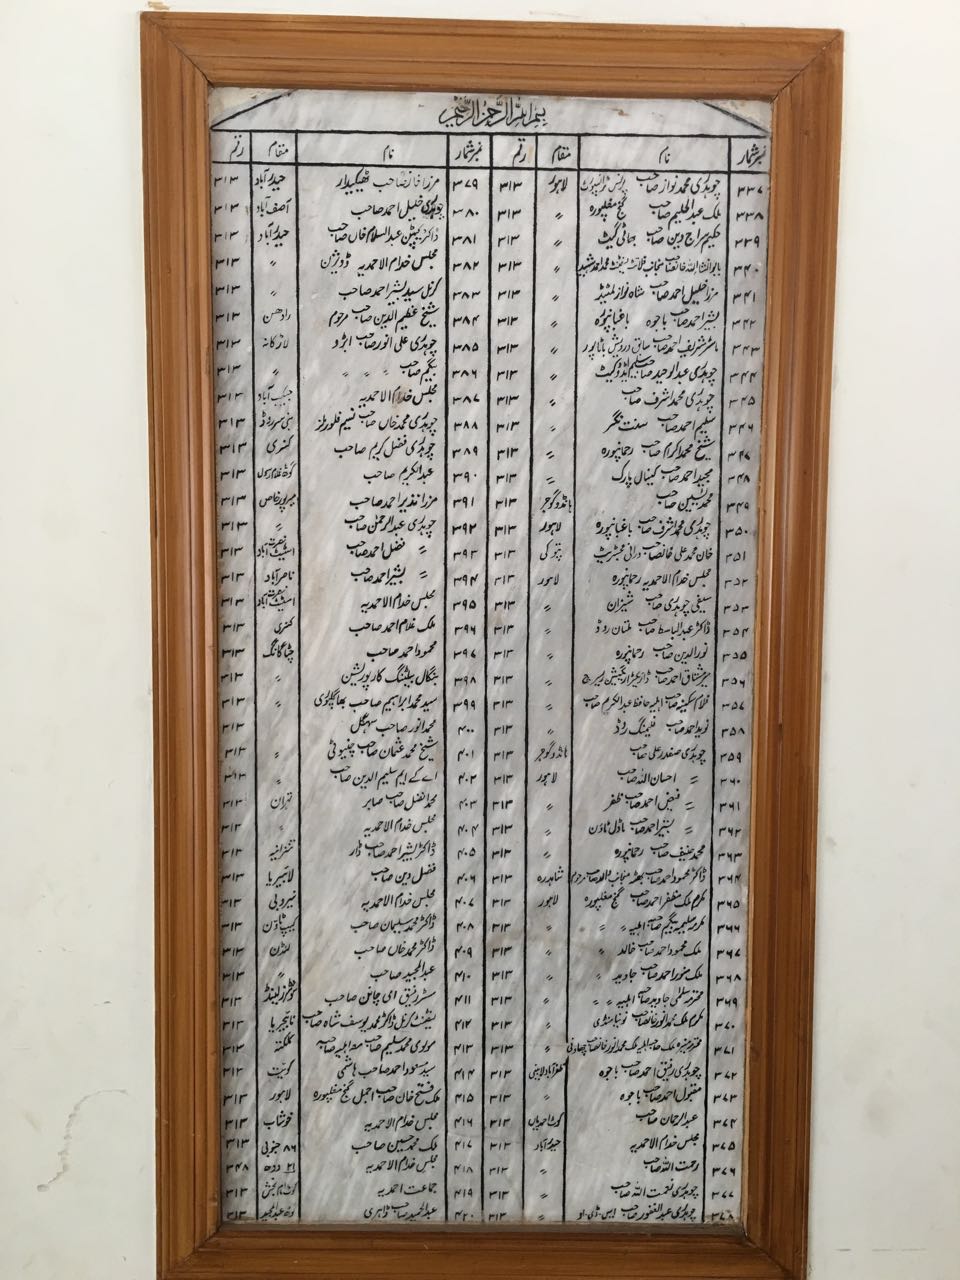 بسم اللہ الرحمن الرحیم
نمبر شمار نام مقام رقم نمبر شمار نام مقام رقم
۳۳۷ چوہدری محمد نواز صاحب لاہور ۳۱۳
۳۳۸ ملک عبدالحلیم صاحب گنج مغلپورہ 〃 ۳۱۳
۳۳۹ حکیم سراج دین صاحب بھاٹی گیٹ 〃 ۳۱۳
۳۴۰ 〃 ۳۱۳
۳۴۱ مرزا خلیل احمد صاحب شاہ نواز لمیٹڈ 〃 ۳۱۳
۳۴۲ بشیر احمد صاحب باجوہ باغبانپورہ 〃 ۳۱۳
۳۴۳ ماسٹر شریف احمد صاحب سابق درویش باٹا پور 〃 ۳۱۳
۳۴۴ چوہدری عبدالوحید صاحب سلیم ایڈووکیٹ 〃 ۳۱۳
۳۴۵ چوہدری محمد اشرف صاحب 〃 ۳۱۳
۳۴۶ سلیم احمد صاحب سنت نگر 〃 ۳۱۳
۳۴۷ شیخ محمد اکرام صاحب رحمانپورہ 〃 ۳۱۳
۳۴۸ مجید احمد صاحب کینال پارک 〃 ۳۱۳
۳۴۹ محمد یٰسین صاحب ہانڈو گوجر ۳۱۳
۳۵۰ چوہدری محمد اشرف صاحب باغبانپورہ لاہور ۳۱۳
۳۵۱ خان محمد علی خانصاحب درانی مجسٹریٹ پتوکی ۳۱۳
۳۵۲ مجلس خدام الاحمدیہ رحمانپورہ لاہور ۳۱۳
۳۵۳ سیفی چوہدری صاحب شیزان 〃 ۳۱۳
۳۵۴ ڈاکٹر عبدالباسط صاحب ملتان روڈ 〃 ۳۱۳
۳۵۵ نورالدین صاحب رحمانپورہ 〃 ۳۱۳
۳۵۶ ڈائریکٹر اریگیشن ریسرچ 〃 ۳۱۳
۳۵۷ غلام سکینہ صاحبہ اہلیہ حافظ عبدالکریم صاحب 〃 ۳۱۳
۳۵۸ نوید احمد صاحب فلیمنگ روڈ 〃 ۳۱۳
۳۵۹ چوہدری صفدر علی صاحب ہانڈو گوجر ۳۱۳
۳۶۰ 〃 احسان اللہ صاحب لاہور ۳۱۳
۳۶۱ 〃 فیض احمد صاحب ظفر 〃 ۳۱۳
۳۶۲ 〃 بشیر احمد صاحب ماڈل ٹاؤن 〃 ۳۱۳
۳۶۳ محمد حنیف صاحب رحمانپورہ 〃 ۳۱۳
۳۶۴ ڈاکٹر محمود احمد صاحب شاہدرہ ۳۱۳
۳۶۵ مکرم ملک مظفر احمد صاحب گنج مغلپورہ لاہور ۳۱۳
۳۶۶ مکرمہ سلیمہ بیگم صاحبہ اہلیہ 〃 〃 〃 ۳۱۳
۳۶۷ ملک محمود احمد صاحب خالد 〃 〃 ۳۱۳
۳۶۸ ملک منور احمد صاحب جاوید 〃 〃 ۳۱۳
۳۶۹ محترمہ سلمیٰ جاوید صاحبہ اہلیہ 〃 〃 〃 ۳۱۳
۳۷۰ مکرم ملک محمد انور خانصاحب 〃 ۳۱۳
۳۷۱ ملک محمد انور خانصاحب چھاؤنی 〃 ۳۱۳
۳۷۲ چوہدری رفیق احمد صاحب باجوہ ۳۱۳
۳۷۳ مقبول احمد صاحب باجوہ 〃 ۳۱۳
۳۷۴ عبدالرحمان صاحب کوٹ احمدیاں ۳۱۳
۳۷۵ مجلس خدام الاحمدیہ حیدرآباد ۳۱۳
۳۷۶ رحمت اللہ صاحب 〃 ۳۱۳
۳۷۷ چوہدری نعمت اللہ صاحب 〃 ۳۱۳
۳۷۸ چوہدری عبدالغفور صاحب ایس۔ڈی۔او 〃 ۳۱۳
۳۷۹ صاحب ٹھیکیدار حیدرآباد ۳۱۳
۳۸۰ چوہدری خلیل احمد صاحب آصف آباد ۳۱۳
۳۸۱ ڈاکٹر کیپٹن عبدالسلام خاں صاحب حیدرآباد ۳۱۳
۳۸۲ مجلس خدام الاحمدیہ ڈویژن 〃 ۳۱۳
۳۸۳ کرنل سید بشیر احمد صاحب 〃 ۳۱۳
۳۸۴ شیخ عظیم الدین صاحب مرحوم رادھن ۳۱۳
۳۸۵ چوہدری علی انور صاحب ابڑو لاڑکانہ ۳۱۳
۳۸۶ بیگم صاحبہ 〃 〃 〃 〃 ۳۱۳
۳۸۷ مجلس خدام الاحمدیہ جیکب آباد ۳۱۳
۳۸۸ چوہدری محمد خاں صاحب نسیم فلور ملز بنی سر روڈ ۳۱۳
۳۸۹ چوہدری فضل کریم صاحب کنری ۳۱۳
۳۹۰ عبدالکریم صاحب گوٹھ غلام رسول ۳۱۳
۳۹۱ مرزا نذیر احمد صاحب میرپور خاص ۳۱۳
۳۹۲ چوہدری عبدالرحمٰن صاحب 〃 ۳۱۳
۳۹۳ 〃 فضل احمد صاحب نصرت آباد اسٹیٹ ۳۱۳
۳۹۴ 〃 بشیر احمد صاحب ناصر آباد ۳۱۳
۳۹۵ مجلس خدام الاحمدیہ نصرت آباد اسٹیٹ ۳۱۳
۳۹۶ ملک غلام احمد صاحب کنری ۳۱۳
۳۹۷ محمود احمد صاحب چٹاگانگ ۳۱۳
۳۹۸ بنگال بیلٹنگ کارپوریشن 〃 ۳۱۳
۳۹۹ سید محمد ابراہیم صاحب بھاگلپوری 〃 ۳۱۳
۴۰۰ محمد انور صاحب سہگل ۳۱۳
۴۰۱ شیخ محمد عثمان صاحب چنیوٹی 〃 ۳۱۳
۴۰۲ اے کے ایم سلیم الدین صاحب 〃 ۳۱۳
۴۰۳ محمد افضل صاحب صابر تہران ۳۱۳
۴۰۴ مجلس خدام الاحمدیہ 〃 ۳۱۳
۴۰۵ ڈاکٹر بشیر احمد صاحب ڈار تنزانیہ ۳۱۳
۴۰۶ فضل دین صاحب لائبیریا ۳۱۳
۴۰۷ مجلس خدام الاحمدیہ نیروبی ۳۱۳
۴۰۸ ڈاکٹر محمد سلیمان صاحب کیپ ٹاؤن ۳۱۳
۴۰۹ ڈاکٹر محمد خاں صاحب لنڈن ۳۱۳
۴۱۰ عبدالمجید صاحب 〃 ۳۱۳
۴۱۱ مسٹر رفیق ای چانن صاحب سوئٹزرلینڈ ۳۱۳
۴۱۲ لیفٹنٹ کرنل ڈاکٹر محمد یوسف شاہ صاحب نائیجیریا ۳۱۳
۴۱۳ مولوی محمد سلیم صاحب معہ اہلیہ صاحبہ کلکتہ ۳۱۳
۴۱۴ سید مسعود احمد صاحب ہاشمی کویت ۳۱۳
۴۱۵ ملک فتح خان صاحب اجمل گنج مغلپورہ لاہور ۳۱۳
۴۱۶ مجلس خدام الاحمدیہ خوشاب ۳۱۳
۴۱۷ ملک محمد حسین صاحب ۸۶ جنوبی ۳۱۳
۴۱۸ مجلس خدام الاحمدیہ ۳۴۸
۴۱۹ جماعت احمدیہ ۳۱۳
۴۲۰ عبدالحمید صاحب ڈاہری ۳۱۳